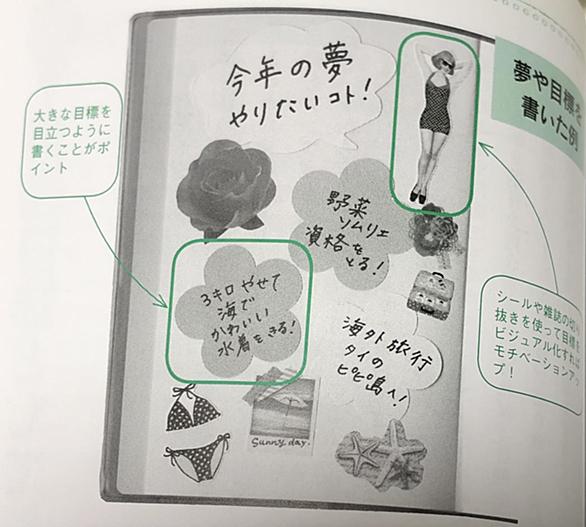 今年の夢
やりたいコト!
夢や目標を
書いた例
大きな目標を
目立つように
書くことがポ
イント
野菜
ソムリエ
資格を
とる!
3キロやせて
海で
かわいい
水着をきる!
海外旅行
タイの
ピピ島へ!
シールや雑誌の切り
抜きを使って目標を
ビジュアル化すれば
モチベーションアッ
プ!
Sunny day.